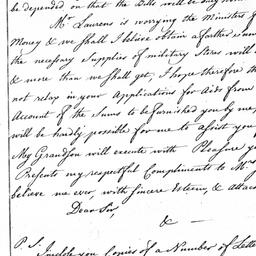 be depended on that the Bills will be duly
Mr. Laurens is worrying the Ministers f
Money & we shall I believe obtain a farther sum
the necessary Supplies of military Stores will
& more than we shall get, I hope therefore th
not relax in your Applications for Aids from
Account of the Sums to be furnished you by me,
will be hardly possible for me to assist you
My Grandson will execute with Pleasure y
Presents my respectful Compliments to Mrs
believe me ever, with sincere Esteem, & attac
Dear Sir,
& —
P. S.
Inclose you Copies of a Number of Lette